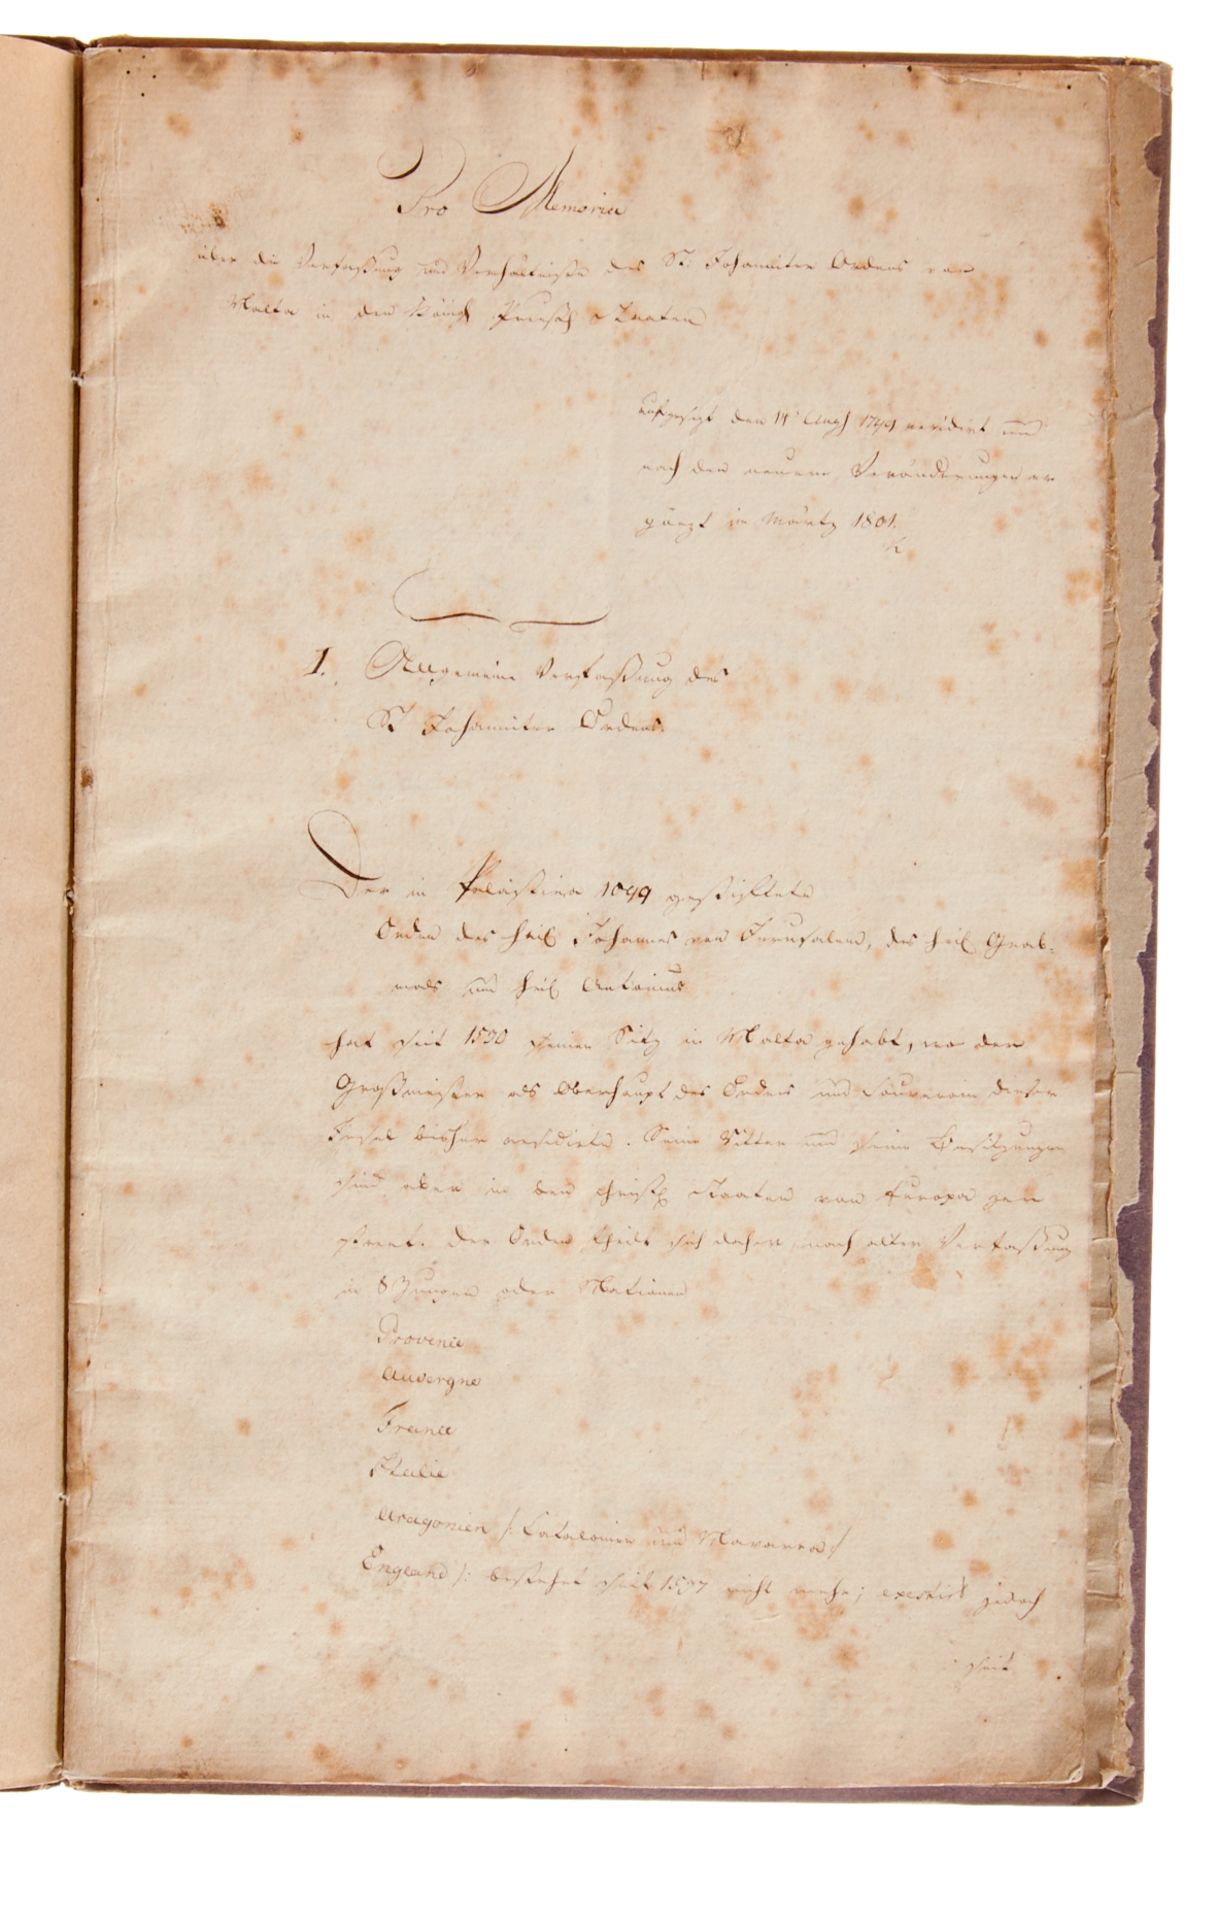 Pro Memoria
über die Verfaßung und Verhältniße des St: Johanniter Ordens von
Malta in den Königl Preuß Staaten
aufgesezt den 14 Augst 1799 revidirt und
nach den neuern Veränderungen er
gänzt im Märtz 1801.
I. Allgemeine Verfaßung des
St Johanniter Ordens.
Der in Palästina 1099 gestiftete
Orden des heil Johannes von Jerusalem, des heil Grab-
mals und heil Antonius
hat seit 1530 seinen Sitz in Malta gehabt, wo der
Großmeister als Oberhaupt des Ordens und Souverain dieser
Insel bisher residirte. Seine Ritter und seine Besitzungen
sind aber in den christl Staaten von Europa zer
streut. Der Orden theilt sich daher nach alter Verfaßung
in 8 Zungen oder Nationen
Provence
Auvergne
France
Italie
Aragonien /: Catalonien und Navarra :/
England /: bestehet seit 1537 nicht mehr; jedoch
seit